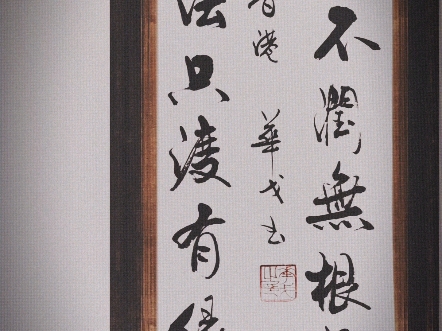 不潤無根
法只渡有緣
香港 華戈书